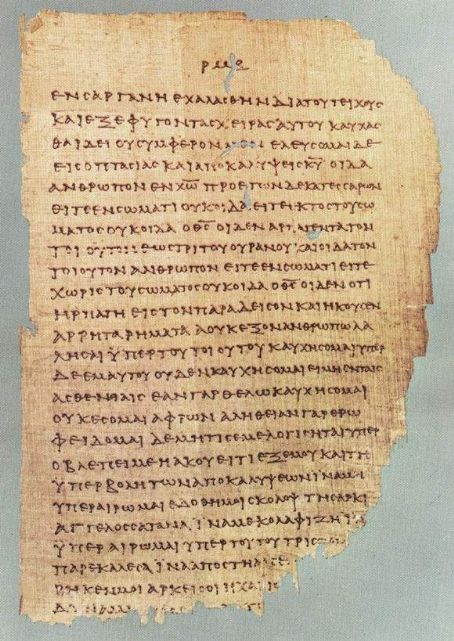 ΕΝϹΑΡΓΑΝΗΕΧΑΛΑϹΘΗΝΔΙΑΤΟΥΤΕΙΧΟΥϹ
ΚΑΙΕΞΕΦΥΓΟΝΤΑϹΧΕΙΡΑϹΑΥΤΟΥΚΑΥΧΑϹ
ΘΑΙΔΕΙΟΥϹΥΜΦΕΡΟΝΜΕΝΕΛΕΥϹΟΜΑΙΔΕ
ΕΙϹΟΠΤΑϹΙΑϹΚΑΙΑΠΟΚΑΛΥΨΕΙϹΚ̅Υ̅ΟΙΔΑ
ΑΝΘΡΩΠΟΝΕΝΧ̅Ω̅ΠΡΟΕΤΩΝΔΕΚΑΤΕϹϹΑΡΩΝ
ΕΙΤΕΕΝϹΩΜΑΤΙΟΥΚΟΙΔΑΕΙΤΕΕΚΤΟϹΤΟΥϹΩ
ΜΑΤΟϹΟΥΚΟΙΔΑΟΘ̅Ϲ̅ΟΙΔΕΝΑΡΠΑΓΕΝΤΑΤΟΝ
ΤΟΙΟΥΤΟΝΕΩϹΤΡΙΤΟΥΟΥΡΑΝΟΥΚΑΙΟΙΔΑΤΟΝ
ΤΟΙΟΥΤΟΝΑΝΘΡΩΠΟΝΕΙΤΕΕΝϹΩΜΑΤΙΕΙΤΕ
ΧΩΡΙϹΤΟΥϹΩΜΑΤΟϹΟΥΚΟΙΔΑΟΘ̅Ϲ̅ΟΙΔΕΝΟΤΙ
ΗΡΠΑΓΗΕΙϹΤΟΝΠΑΡΑΔΕΙϹΟΝΚΑΙΗΚΟΥϹΕΝ
ΑΡΡΗΤΑΡΗΜΑΤΑΑΟΥΚΕΞΟΝΑΝΘΡΩΠΩΛΑ
ΛΗϹΑΙΫΠΕΡΤΟΥΤΟΙΟΥΤΟΥΚΑΥΧΗϹΟΜΑΙΥΠΕΡ
ΔΕΕΜΑΥΤΟΥΟΥΔΕΝΚΑΥΧΗϹΟΜΑΙΕΙΜΗΕΝΤΑΙϹ
ΑϹΘΕΝΕΙΑΙϹΕΑΝΓΑΡΘΕΛΩΚΑΥΧΗϹΟΜΑΙ
ΟΥΚΕϹΟΜΑΙΑΦΡΩΝΑΛΗΘΕΙΑΝΓΑΡΕΡΩ
ΦΕΙΔΟΜΑΙΔΕΜΗΤΙϹΕΜΕΛΟΓΙϹΗΤΑΙΥΠΕΡ
ΟΒΛΕΠΕΙΜΕΗΑΚΟΥΕΙΤΙΕΞΕΜΟΥΚΑΙΤΗ
ΫΠΕΡΒΟΛΗΤΩΝΑΠΟΚΑΛΥΨΕΩΝΪΝΑΜΗ
ΥΠΕΡΑΙΡΩΜΑΙΕΔΟΘΗΜΟΙϹΚΟΛΟΨΤΗϹΑΡΚΙ
ΑΓΓΕΛΟϹϹΑΤΑΝΑΪΝΑΜΕΚΟΛΑΦΙΖΗΪ
ΫΠΕΡΑΙΡΩΜΑΙΥΠΕΡΤΟΥΤΟΥΤΡΙϹ
ΠΑΡΕΚΑΛΕϹΑΪΝΑΑΠΟϹΤΗ
ΒΗΚΕΝΜΟΙΑΡΚΕΙϹΟΙΗΧΑΡΙϹ